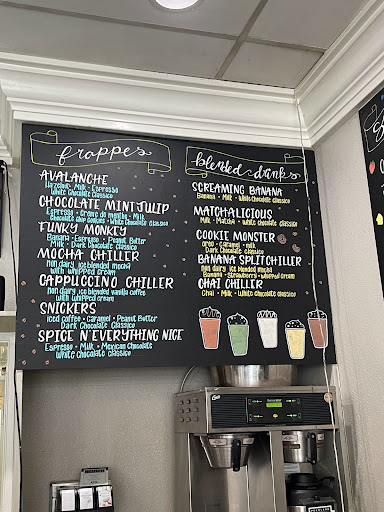 frappes
AVALANCHE
Hazelnut • Milk • Espresso
White Chocolate Classico
CHOCOLATE MINT JULIP
Espresso • Creme de menthe • Milk
Chocolate chip cookies • White Chocolate classico
FUNKY MONKEY
Banana • Espresso • Peanut Butter
Milk • Dark Chocolate Classico
MOCHA CHILLER
non dairy iceblended mocha
with whipped cream
CAPPUCCINO CHILLER
non dairy ice blended vanilla coffee
with whipped cream
SNICKERS
Iced coffee • Caramel • Peanut Butter
Dark Chocolate Classico
SPICE N EVERYTHING NICE
Espresso • Milk • Mexican Chocolate
White chocolate classico
blended drinks
SCREAMING BANANA
Banana • Milk • White Chocolate classico
MATCHALICIOUS
Milk • Matcha • White chocolate classico
COOKIE MONSTER
Oreo • Caramel • milk
Dark Chocolate classico
BANANA SPLIT CHILLER
non dairy ice blended mocha
Banana • Strawberry • whipped cream
CHAI CHILLER
Chai • Milk • White chocolate classico